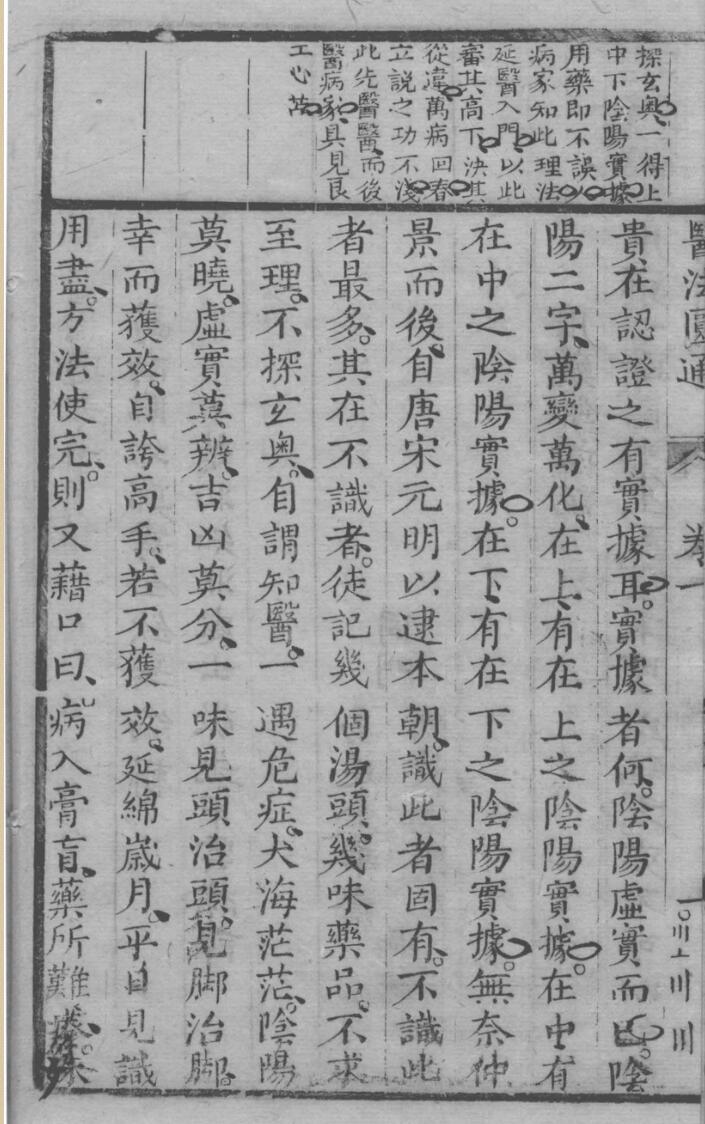 醫法圓通
卷一
探玄奧一得上
中下陰陽實據
用藥即不誤人
病家知此理法
延醫入門以此
審其高下決其
從違萬病回春
立說之功不淺
此先醫醫而後
醫病家具見良
工心苦
貴在認證之有實據耳實據者何陰陽虛實而已陰
陽二字萬變萬化在上有在上之陰陽實據在中有
在中之陰陽實據在下有在下之陰陽實據無奈仲
景而後自唐宋元明以逮本朝識此者固有不識此
者最多其在不識者徒記幾個湯頭幾味藥品不求
至理不探玄奧自謂知醫一遇危症大海茫茫陰陽
莫曉虛實莫辨吉凶莫分一味見頭治頭見脚治脚
幸而獲效自誇高手若不獲效延綿歲月平日見識
用盡方法使完則又藉口曰病入膏肓藥所難